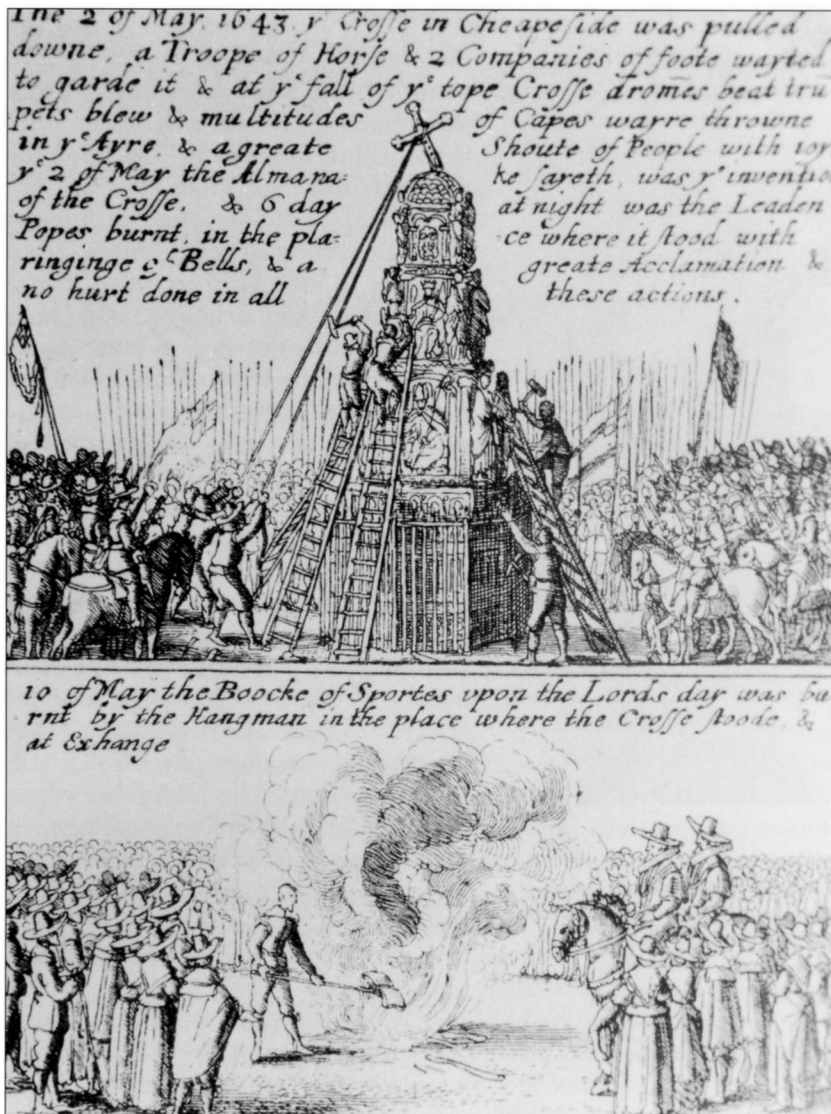 The 2 of May. 1643. yͤ Crosse in Cheapeside was pulled
downe, a Troope of Horse & 2 Companies of foote wayted
to garde it & at yͤ fall of yͤ tope Crosse dromes beat tru
pets blew & multitudes of Capes wayre throwne
in yͤ Ayre, & a greate Shoute of People with ioy
yͤ 2 of May the Almana= ke sayeth, was yͤ inventio
of the Crosse, & 6 day at night was the Leaden
Popes burnt, in the pla= =ce where it stood with
ringinge of Bells, & a greate Acclamation &
no hurt done in all these actions.
10 of May the Boocke of Sportes vpon the Lords day was bu
rnt by the Hangman in the place where the Crosse stoode, &
at Exhange